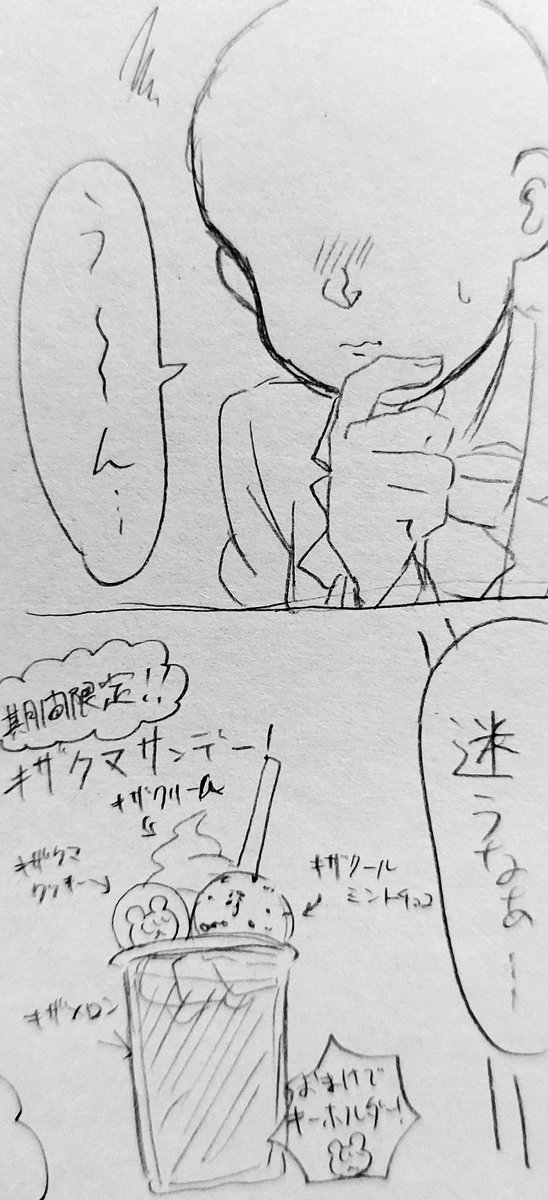 う〜ん…
迷うなぁーー
期間限定!!
キザクマサンデー!
キザクリーム
キザクマ
クッキー
キザクール
ミントチョコ
キザメロン
おまけで
キーホルダー!